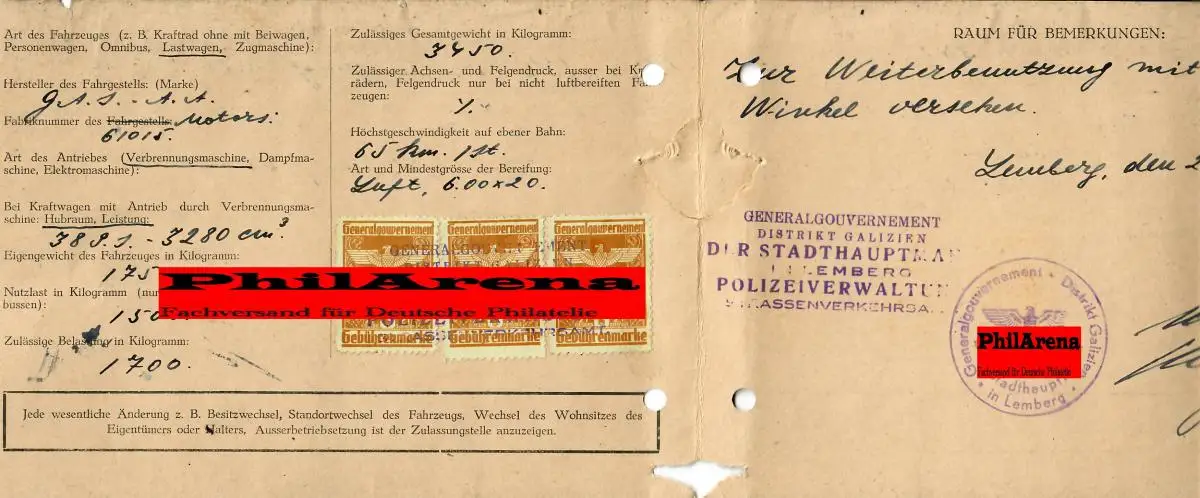 Art des Fahrzeuges (z. B. Kraftrad ohne mit Beiwagen,
Personenwagen, Omnibus, Lastwagen, Zugmaschine):
Hersteller des Fahrgestells: (Marke)
G.A.S. - A.A.
Fabriknummer des Fahrgestells: Motors:
61015.
Art des Antriebes (Verbrennungsmaschine, Dampfma-
schine, Elektromaschine):
Bei Kraftwagen mit Antrieb durch Verbrennungsma-
schine: Hubraum, Leistung:
38 P.S. - 3280 cm³
Eigengewicht des Fahrzeuges in Kilogramm:
175
Nutzlast in Kilogramm (nur
bussen):
150
Zulässige Belastung in Kilogramm:
1700.
Zulässiges Gesamtgewicht in Kilogramm:
3450.
Zulässiger Achsen- und Felgendruck, ausser bei
rädern, Felgendruck nur bei nicht luftbereiften
zeugen:
Höchstgeschwindigkeit auf ebener Bahn:
65 km. /St.
Art und Mindestgrösse der Bereifung:
Luft, 6.00x20.
Generalgouvernement Generalgouvernement Generalgouvernement
GENERALGOUVERNEMENT
Gebührenmarke Gebührenmarke Gebührenmarke
PhilArena
Fachversand für Deutsche Philatelie
Jede wesentliche Änderung z. B. Besitzwechsel, Standortwechsel des Fahrzeugs, Wechsel des Wohnsitzes des
Eigentümers oder Halters, Ausserbetriebsetzung ist der Zulassungstelle anzuzeigen.
RAUM FÜR BEMERKUNGEN:
Zur Weiterbenutzung mit
Winkel versehen.
Lemberg, den 2
GENERALGOUVERNEMENT
DISTRIKT GALIZIEN
DER STADTHAUPTMA
LEMBERG
POLIZEIVERWALTUN
STRASSENVERKEHRSA
Generalgouvernement • Distrikt Galizien
Stadthaupt
in Lemberg
PhilArena
Fachversand für Deutsche Philatelie